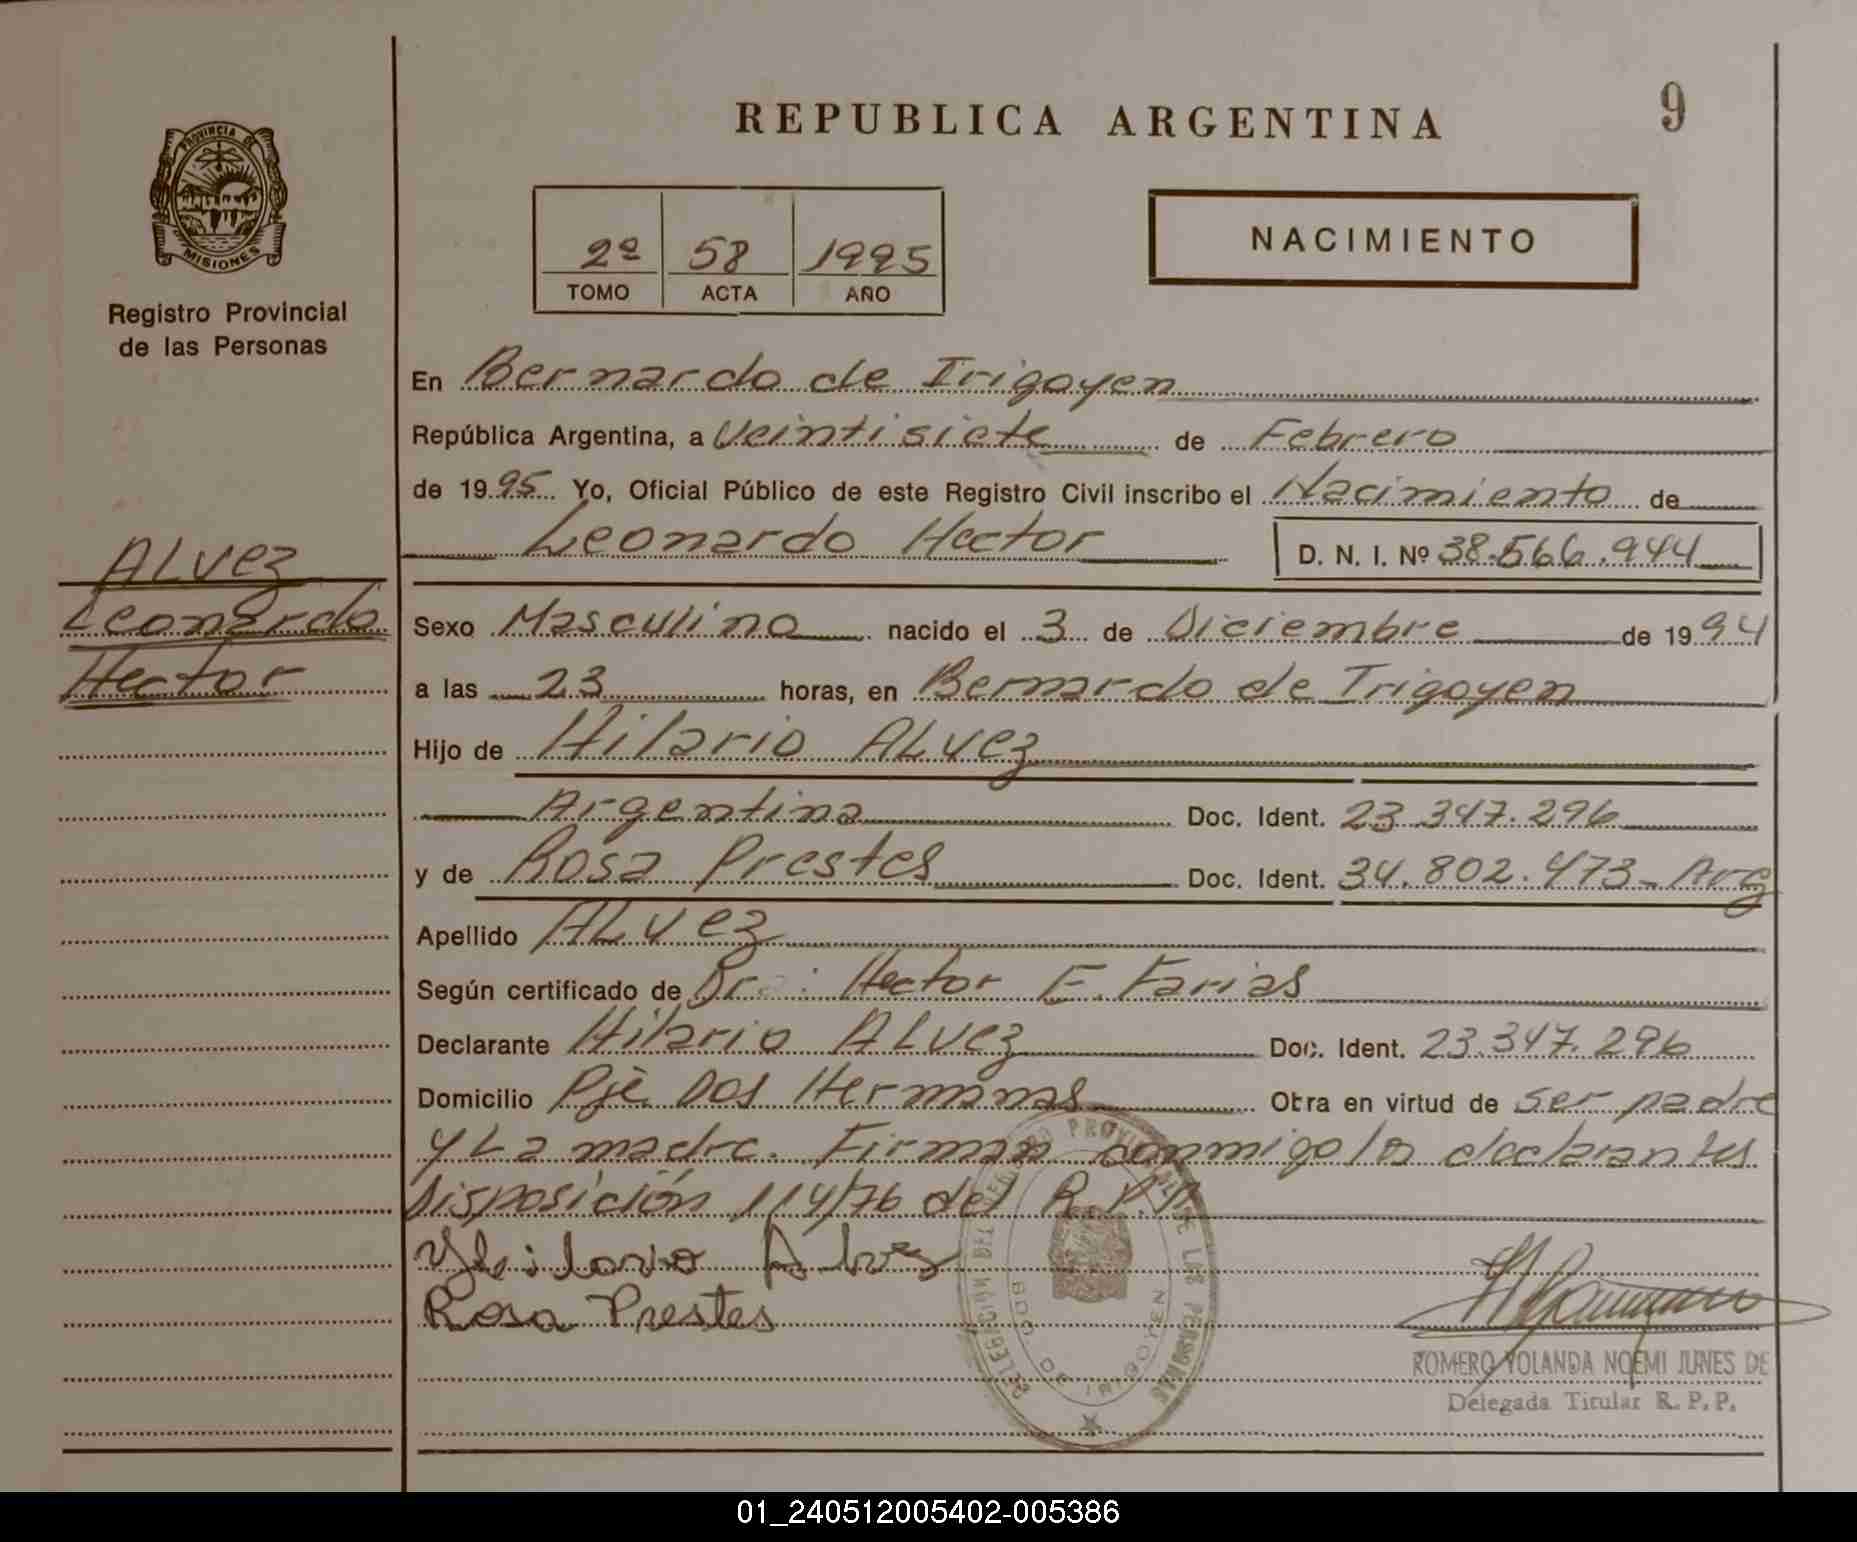 REPUBLICA ARGENTINA
9
PROVINCIA DE
MISIONES
Registro Provincial
de las Personas
2º 58 1995
TOMO ACTA AÑO
NACIMIENTO
En Bernardo de Irigoyen
República Argentina, a Veintisiete de Febrero
de 1995 Yo, Oficial Público de este Registro Civil inscribo el Nacimiento de
Leonardo Hector D. N. I. Nº 38.566.944
ALvez
Leonardo
Hector
Sexo Masculino nacido el 3 de Diciembre de 1994
a las 23 horas, en Bernardo de Irigoyen
Hijo de Hilario ALvez
Argentina Doc. Ident. 23.347.296
y de Rosa Prestes Doc. Ident. 34.802.473- Arg
Apellido ALvez
Según certificado de Dr : Hector E. Farias
Declarante Hilario ALvez Doc. Ident. 23.347.296
Domicilio Pje Dos Hermanas Obra en virtud de ser padre
y La madre. Firman conmigo los declarantes
Disposición 114/76 del R.P.P.
Hilario Alvez
Rosa Prestes
DELEGACION DEL REGISTRO PROVINCIAL DE LAS PERSONAS
BDO. DE IRIGOYEN
ROMERO YOLANDA NOEMI JUNES DE
Delegada Titular R. P. P.
01_240512005402-005386